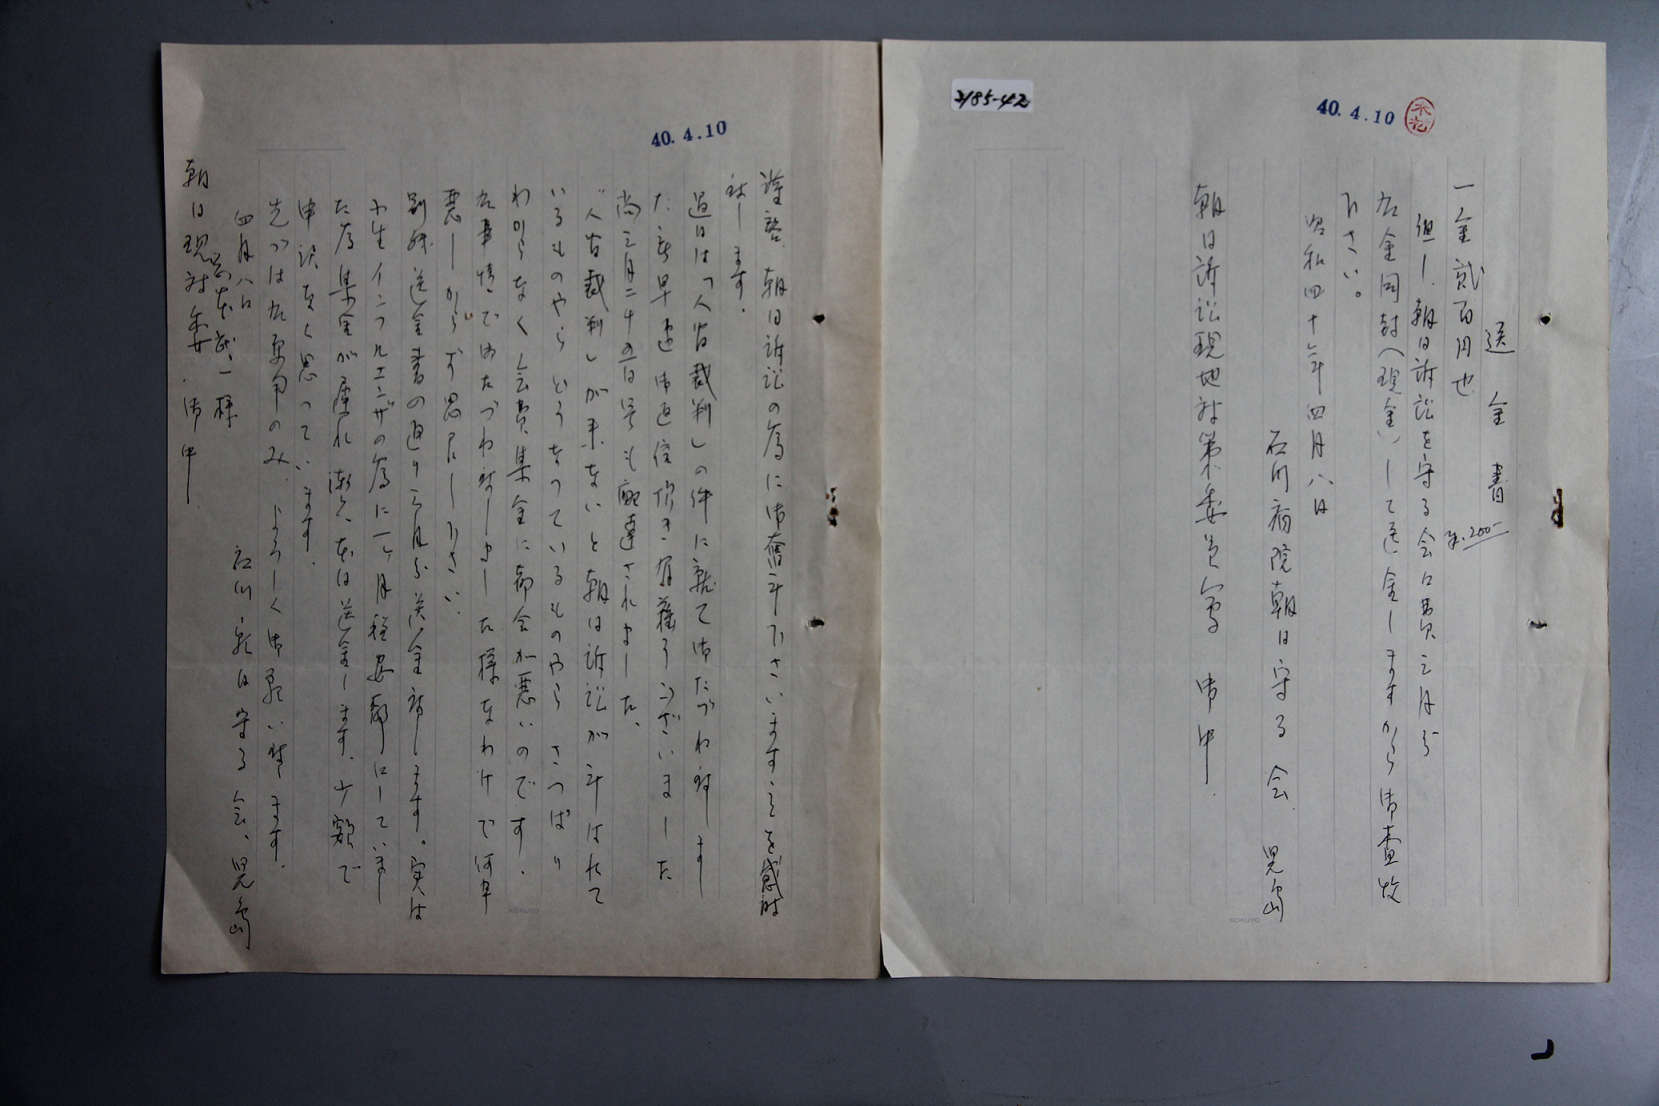 2185-42
40.4.10
送金書
一金貳百円也
¥.200-
但し、朝日訴訟を守る会会費三月分
右金同封(現金)して送金しますから御査收
下さい。
昭和四十年四月八日
石川病院朝日守る会 児島
朝日訴訟現地対策委員会 御中
KOKUYO
40.4.10
謹啓、朝日訴訟の為に御奮斗下さいますことを感謝
致します。
過日は「人間裁判」の件に就て御たづね致しま
た所早速御返信頂き有難うございました
尚三月二十の日号も配達されました、
"人間裁判"が来ないと朝日訴訟が斗はれて
いるものやらどうなっているものやらさっぱり
わからなく会費集金に都合が悪いのです.
右事情で御たづね致しました様なわけで何卒
悪しからず思召し下さい.
別紙送金書の通り三月分送金致します。実は
小生インフルエンザの為に一ヶ月程安静にしていまし
た為集金が遅れ漸く、本日送金します、少額で
申訳なく思っています.
先づは右要用のみ、よろしく御願い致します.
四月八日
石川・朝日守る会、児島
様
朝日現対委.御中
KOKUYO